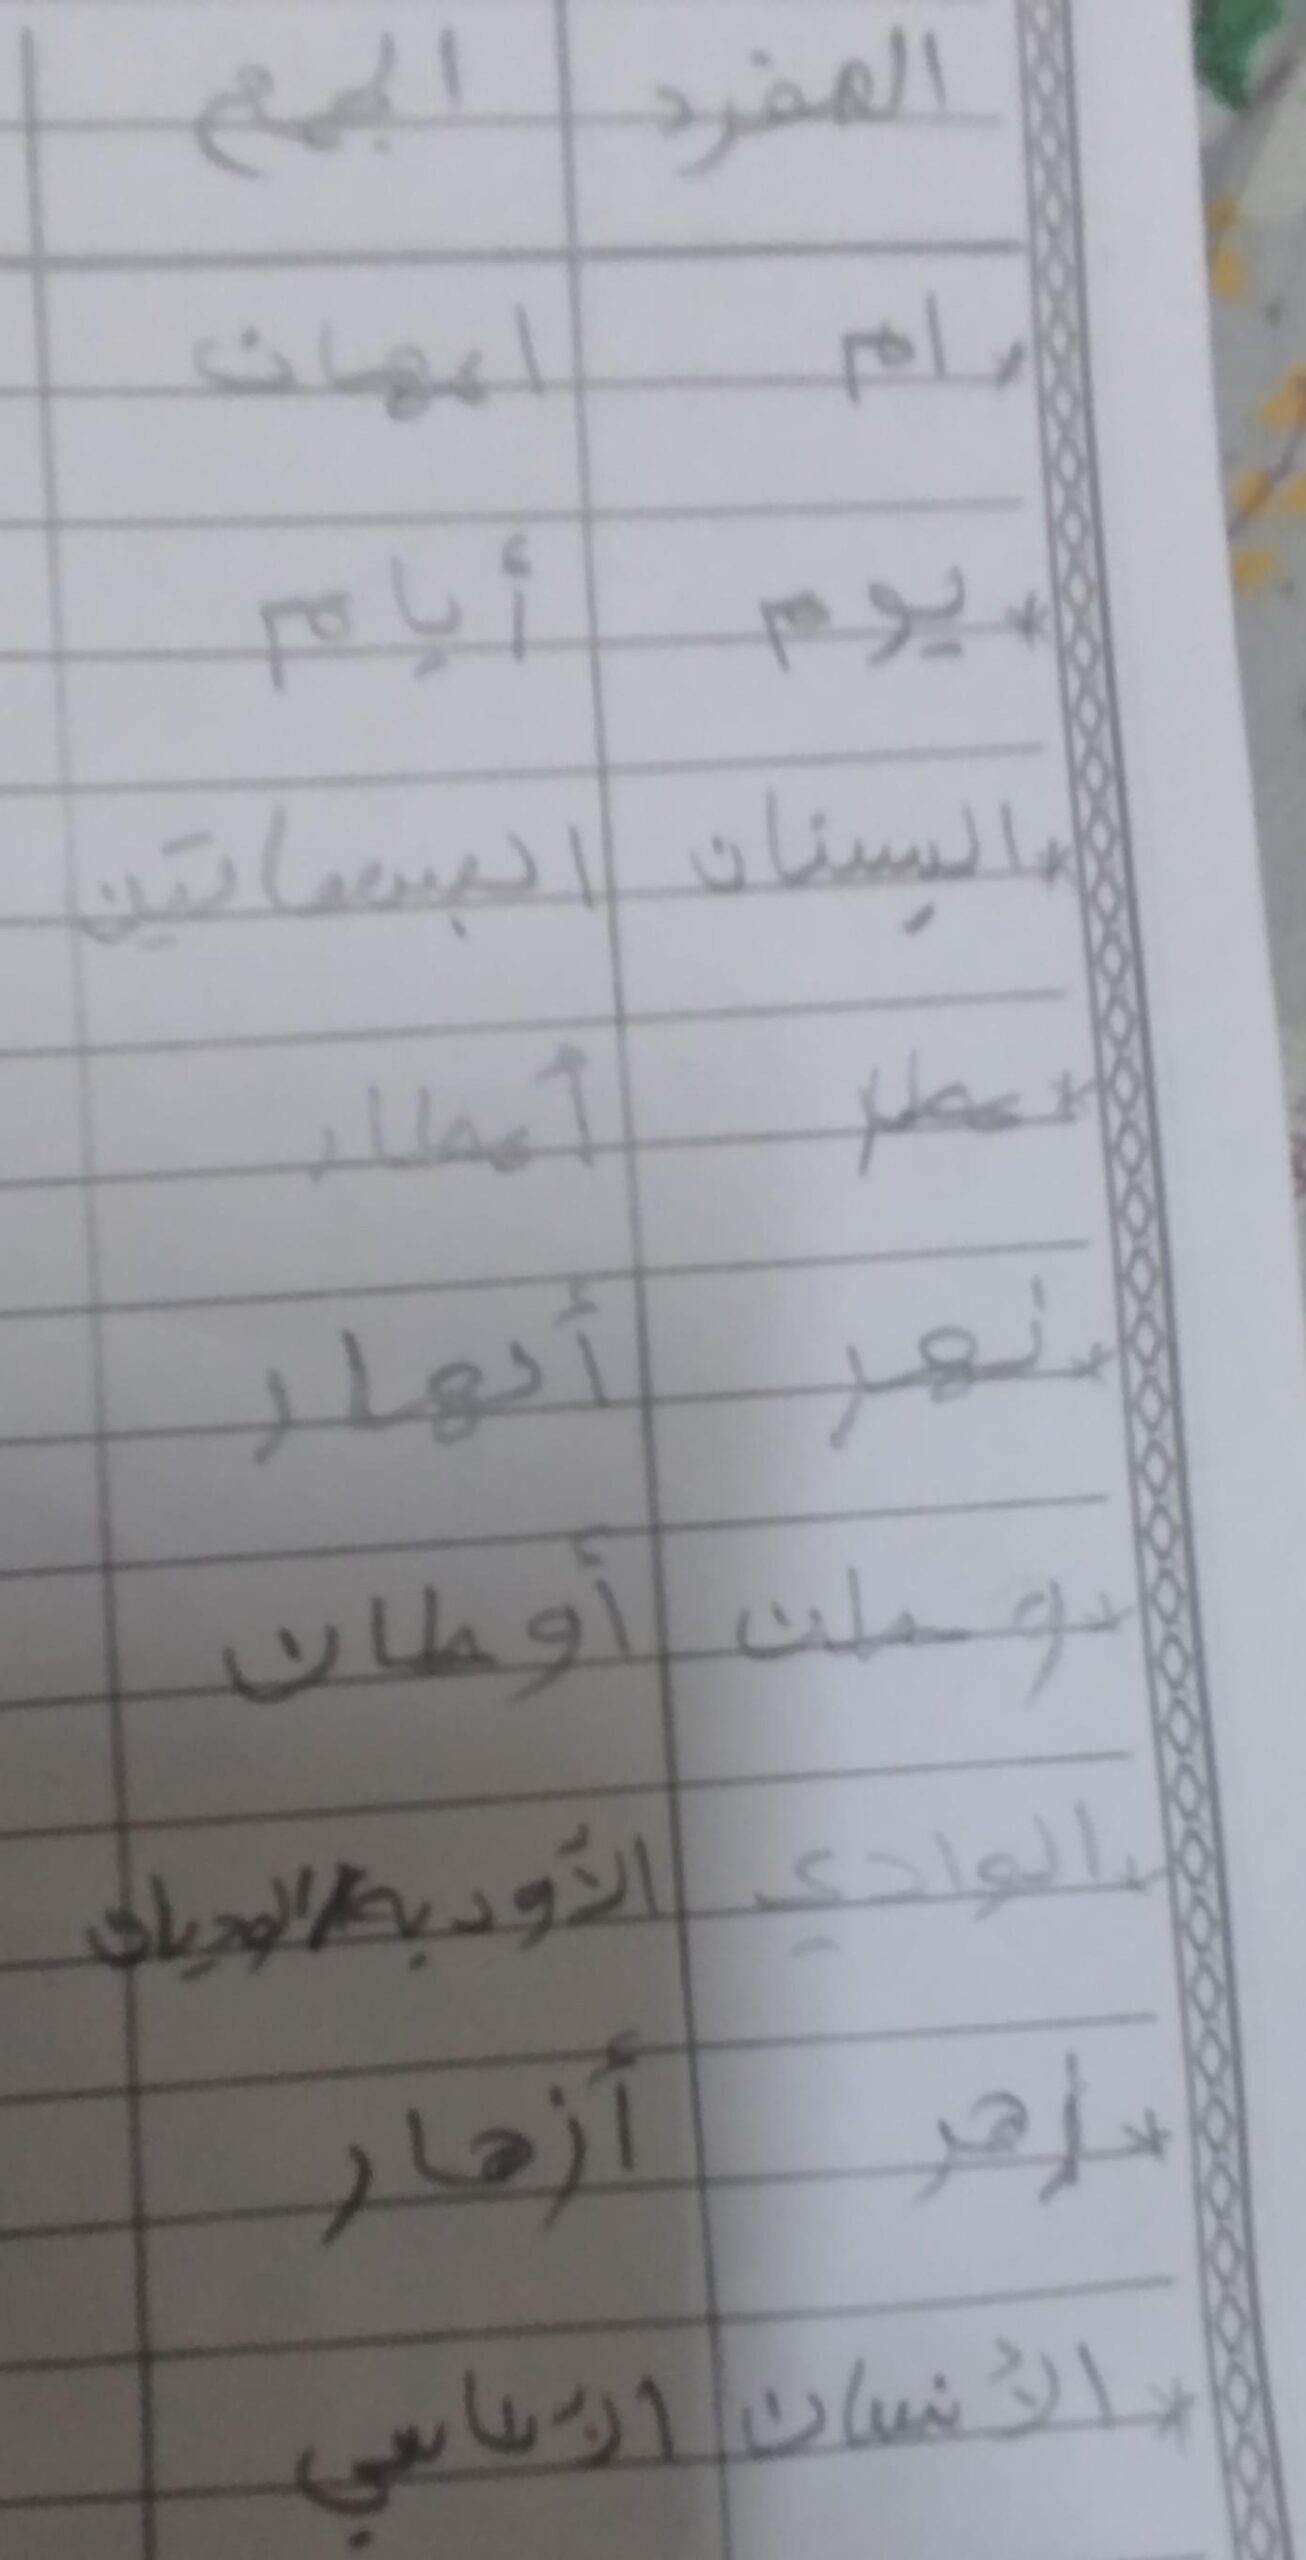 المفرد الجمع
ام امهات
* يوم أيام
* البستان البساتين
* مطر أمطار
* نهر أنهار
* وطن أوطان
الوادي الأودية/الوديان
* زهر أزهار
* الأنسان الأناسي